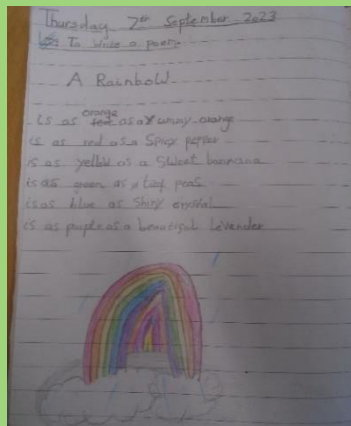 Thursday 7th September 2023
Lo: To write a poem
A Rainbold
is as orange as a yummy orange
is as red as a Spicy pepper
is as yellow as a Sweet banana
is as green as peas
is as blue as Shiny crystal
is as purple as a beautiful Levender